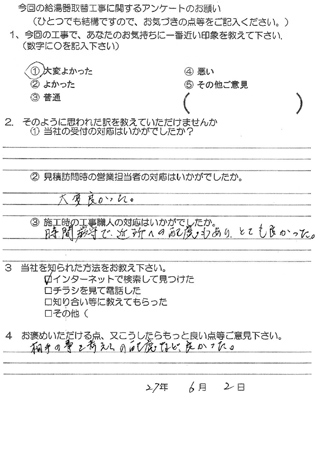 今回の給湯器取替工事に関するアンケートのお願い
(ひとつでも結構ですので、お気づきの点等をご記入ください。)
1、今回の工事で、あなたのお気持ちに一番近い印象を教えて下さい。
(数字に〇を記入下さい)
① 大変よかった
④ 悪い
② よかった
⑤ その他ご意見
③ 普通
( )
2. そのように思われた訳を教えていただけませんか
① 当社の受付の対応はいかがでしたか?
② 見積訪問時の営業担当者の対応はいかがでしたか。
大変良かった。
③ 施工時の工事職人の対応はいかがでしたか。
時間厳守で、近所への配慮もあり、とても良かった。
3 当社を知られた方法をお教え下さい。
☑インターネットで検索して見つけた
□チラシを見て電話した
□知り合い等に教えてもらった
□その他(
4 お褒めいただける点、又こうしたらもっと良い点等ご意見下さい。
相手の事を考えての配慮など、良かった。
27年 6月 2日